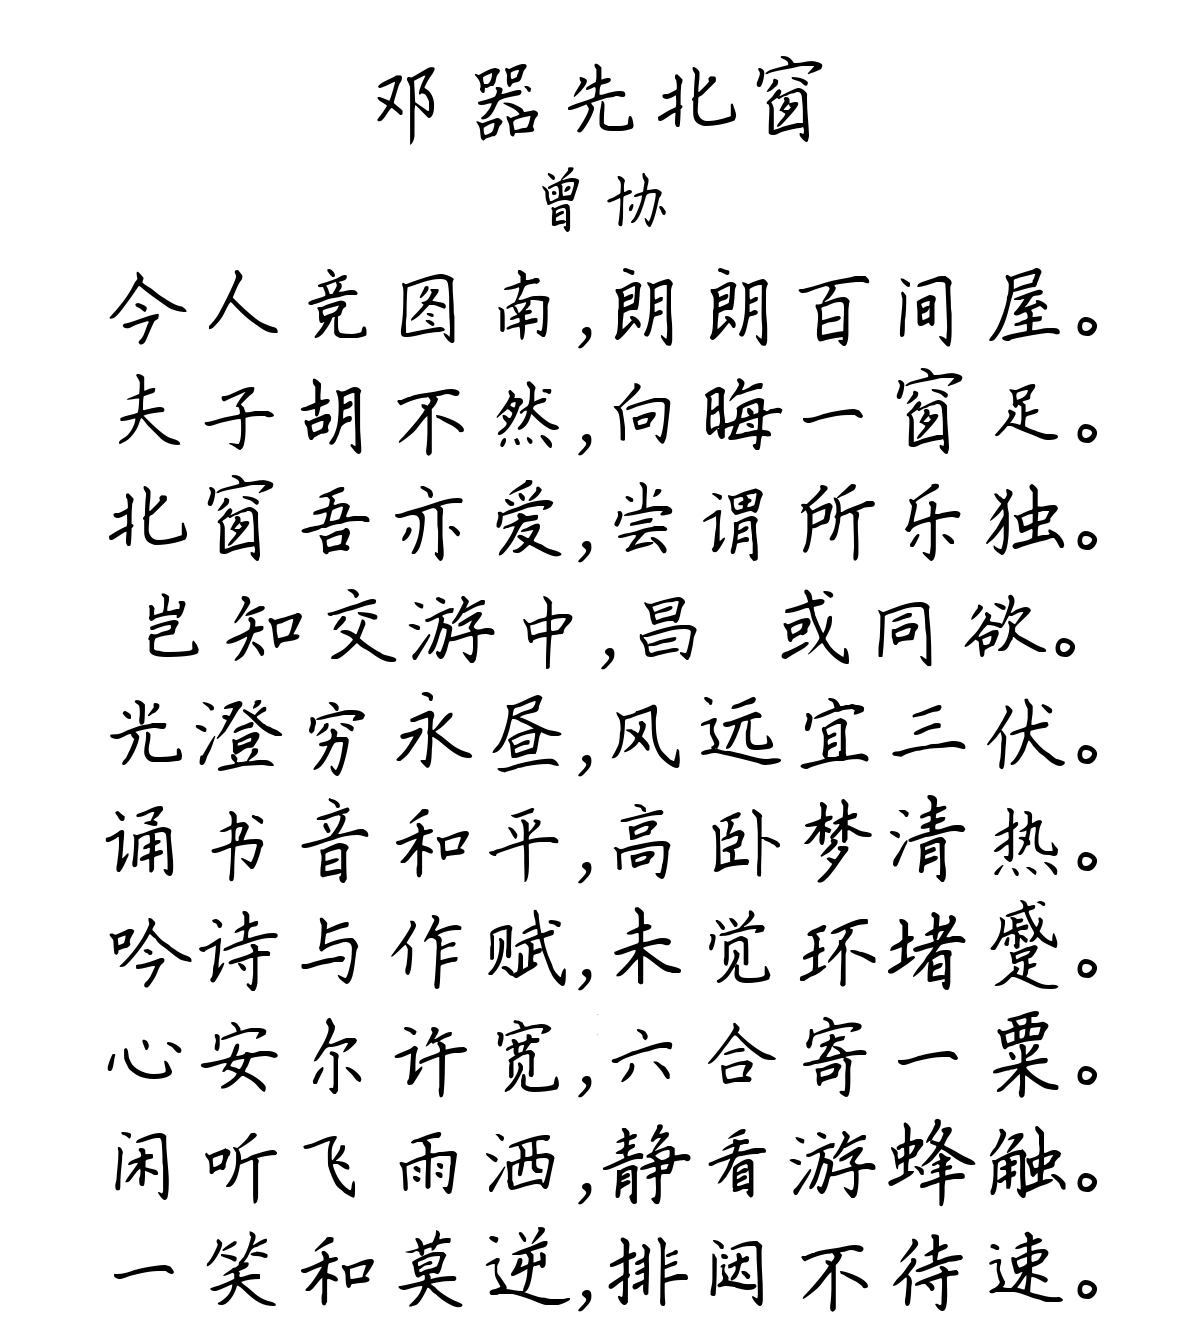 邓器先北窗
曾协
今人竞图南,朗朗百间屋。
夫子胡不然,向晦一窗足。
北窗吾亦爱,尝谓所乐独。
岂知交游中,昌 或同欲。
光澄穷永昼,风远宜三伏。
诵书音和平,高卧梦清热。
吟诗与作赋,未觉环堵蹙。
心安尔许宽,六合寄一粟。
闲听飞雨洒,静看游蜂触。
一笑和莫逆,排闼不待速。